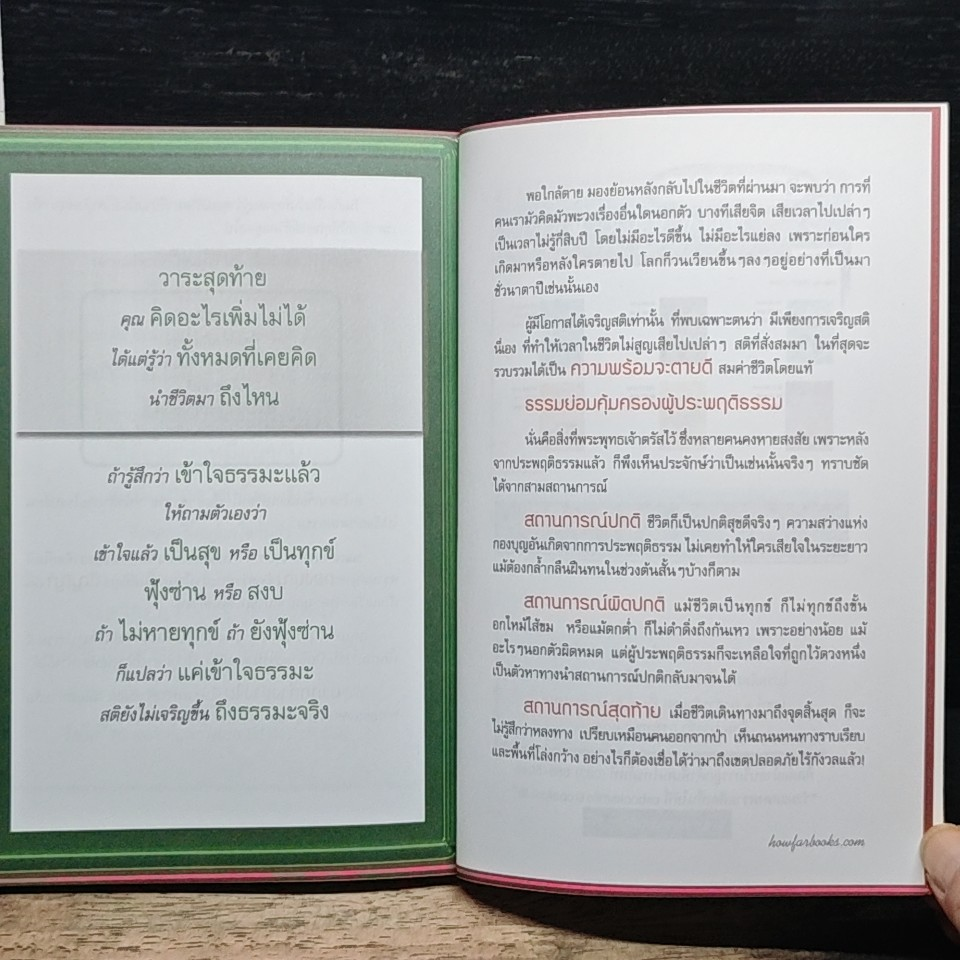 วาระสุดท้าย
คุณ คิดอะไรเพิ่มไม่ได้
ได้แต่รู้ว่า ทั้งหมดที่เคยคิด
นำชีวิตมา ถึงไหน
ถ้ารู้สึกว่า เข้าใจธรรมะแล้ว
ให้ถามตัวเองว่า
เข้าใจแล้ว เป็นสุข หรือ เป็นทุกข์
ฟุ้งซ่าน หรือ สงบ
ถ้า ไม่หายทุกข์ ถ้า ยังฟุ้งซ่าน
ก็แปลว่า แค่เข้าใจธรรมะ
สติยังไม่เจริญขึ้น ถึงธรรมะจริง
พอใกล้ตาย มองย้อนหลังกลับไปในชีวิตที่ผ่านมา จะพบว่า การที่
คนเรามัวคิดมัวพะวงเรื่องอื่นใดนอกตัว บางทีเสียจิต เสียเวลาไปเปล่าๆ
เป็นเวลาไม่รู้กี่สิบปี โดยไม่มีอะไรดีขึ้น ไม่มีอะไรแย่ลง เพราะก่อนใคร
เกิดมาหรือหลังใครตายไป โลกก็วนเวียนขึ้นๆลงๆอยู่อย่างที่เป็นมา
ชั่วนาตาปีเช่นนั้นเอง
ผู้มีโอกาสได้เจริญสติเท่านั้น ที่พบเฉพาะตนว่า มีเพียงการเจริญสติ
นี่เอง ที่ทำให้เวลาในชีวิตไม่สูญเสียไปเปล่าๆ สติที่สั่งสมมา ในที่สุดจะ
รวบรวมได้เป็น ความพร้อมจะตายดี สมค่าชีวิตโดยแท้
ธรรมย่อมคุ้มครองผู้ประพฤติธรรม
นั่นคือสิ่งที่พระพุทธเจ้าตรัสไว้ ซึ่งหลายคนคงหายสงสัย เพราะหลัง
จากประพฤติธรรมแล้ว ก็พึงเห็นประจักษ์ว่าเป็นเช่นนั้นจริงๆ ทราบชัด
ได้จากสามสถานการณ์
สถานการณ์ปกติ ชีวิตก็เป็นปกติสุขดีจริงๆ ความสว่างแห่ง
กองบุญอันเกิดจากการประพฤติธรรม ไม่เคยทำให้ใครเสียใจในระยะยาว
แม้ต้องกล้ำกลืนฝืนทนในช่วงต้นสั้นๆบ้างก็ตาม
สถานการณ์ผิดปกติ แม้ชีวิตเป็นทุกข์ ก็ไม่ทุกข์ถึงขั้น
อกไหม้ไส้ขม หรือแม้ตกต่ำ ก็ไม่ดำดิ่งถึงก้นเหว เพราะอย่างน้อย แม้
อะไรๆนอกตัวผิดหมด แต่ผู้ประพฤติธรรมก็จะเหลือใจที่ถูกไว้ดวงหนึ่ง
เป็นตัวหาทางนำสถานการณ์ปกติกลับมาจนได้
สถานการณ์สุดท้าย เมื่อชีวิตเดินทางมาถึงจุดสิ้นสุด ก็จะ
ไม่รู้สึกว่าหลงทาง เปรียบเหมือนคนออกจากป่า เห็นถนนหนทางราบเรียบ
และพื้นที่โล่งกว้าง อย่างไรก็ต้องเชื่อได้ว่ามาถึงเขตปลอดภัยไร้กังวลแล้ว!
howfarbooks.com